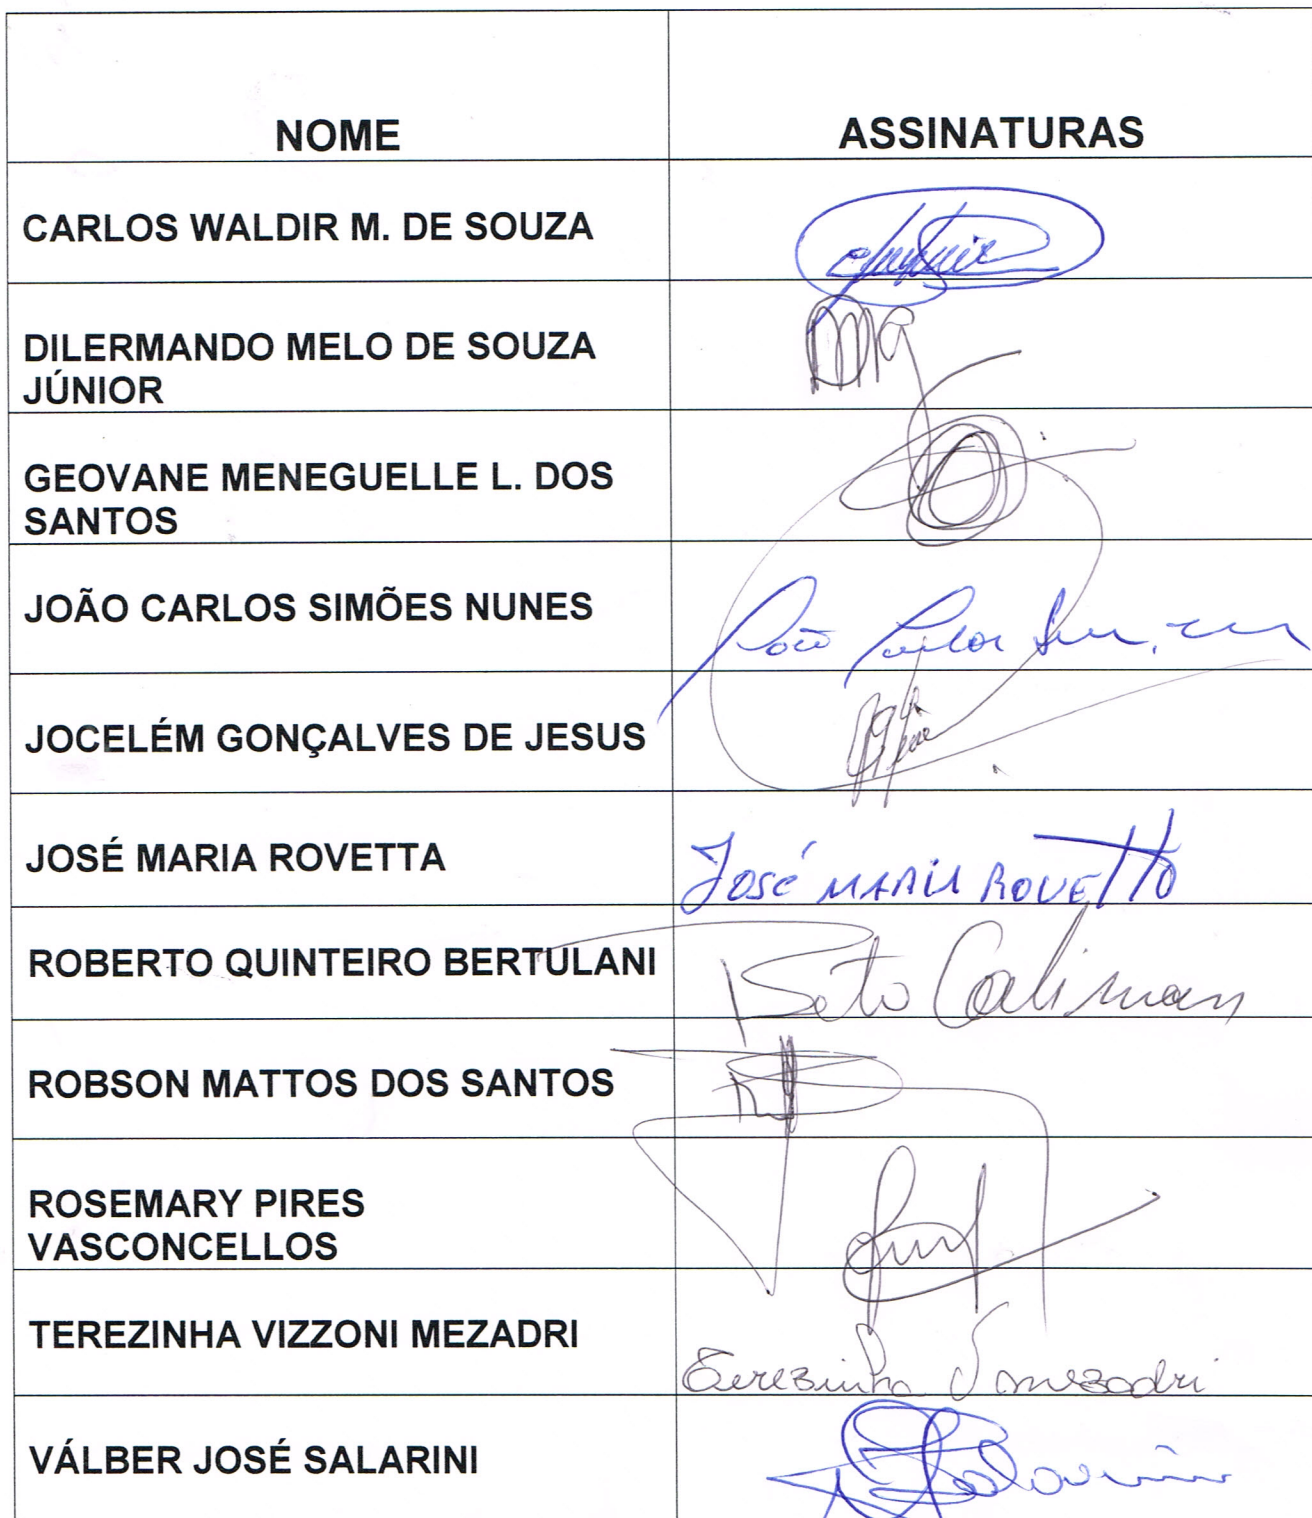 NOME
ASSINATURAS
CARLOS WALDIR M. DE SOUZA
DILERMANDO MELO DE SOUZA
JÚNIOR
GEOVANE MENEGUELLE L. DOS
SANTOS
JOÃO CARLOS SIMÕES NUNES
João Carlos
JOCELÉM GONÇALVES DE JESUS
JOSÉ MARIA ROVETTA
José MARIA ROVETTA
ROBERTO QUINTEIRO BERTULANI
Beto Caliman
ROBSON MATTOS DOS SANTOS
ROSEMARY PIRES
VASCONCELLOS
TEREZINHA VIZZONI MEZADRI
Terezinha V mezadri
VÁLBER JOSÉ SALARINI
Salarini